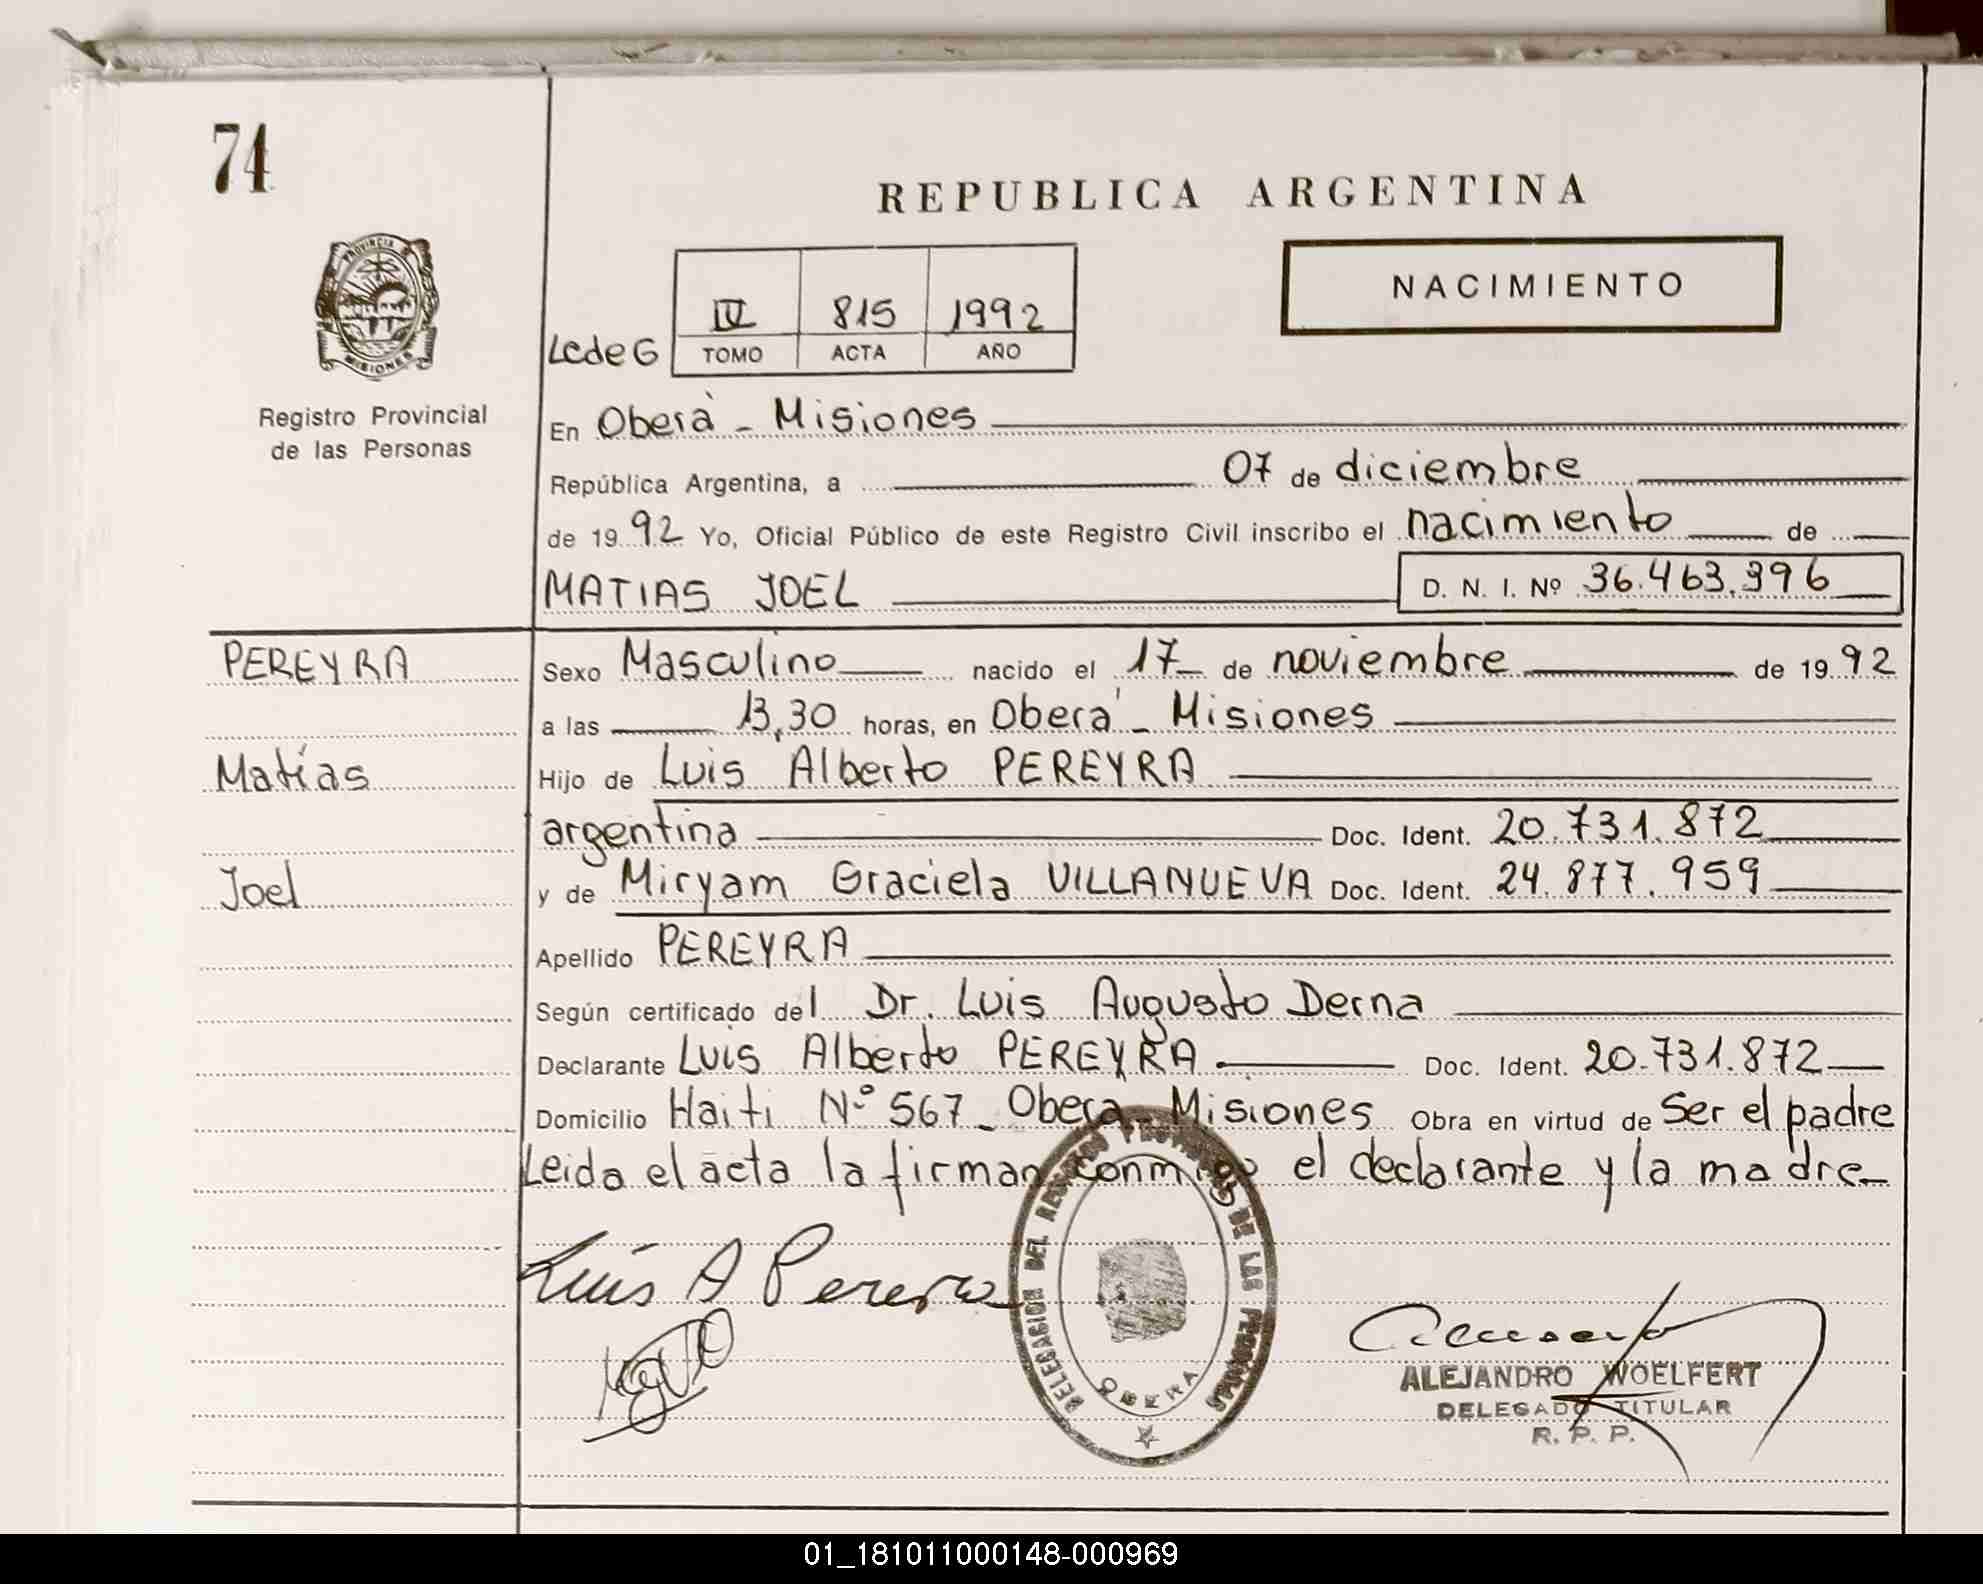 74
REPUBLICA ARGENTINA
PROVINCIA
MISIONES
NACIMIENTO
IV 815 1992
LcdeG TOMO ACTA AÑO
Registro Provincial
de las Personas
En Oberà - Misiones
República Argentina, a 07 de diciembre
de 1992 Yo, Oficial Público de este Registro Civil inscribo el nacimiento de
MATIAS JOEL D. N. I. Nº 36.463.396
PEREYRA
Matías
Joel
Sexo Masculino nacido el 17 de noviembre de 1992
a las 13,30 horas, en Oberá - Misiones
Hijo de Luis Alberto PEREYRA
argentina Doc. Ident. 20.731.872
y de Miryam Graciela VILLANUEVA Doc. Ident. 24.877.959
Apellido PEREYRA
Según certificado del Dr. Luis Augusto Derna
Declarante Luis Alberto PEREYRA Doc. Ident. 20.731.872
Domicilio Haiti Nº 567 - Obera - Misiones Obra en virtud de Ser el padre
Leida el acta la firman conmigo el declarante y la madre
Luis A Pereyra
DELEGACION DEL REGISTRO PROVINCIAL DE LAS PERSONAS
OBERA
ALEJANDRO WOELFERT
DELEGADO TITULAR
R. P. P.
01_181011000148-000969